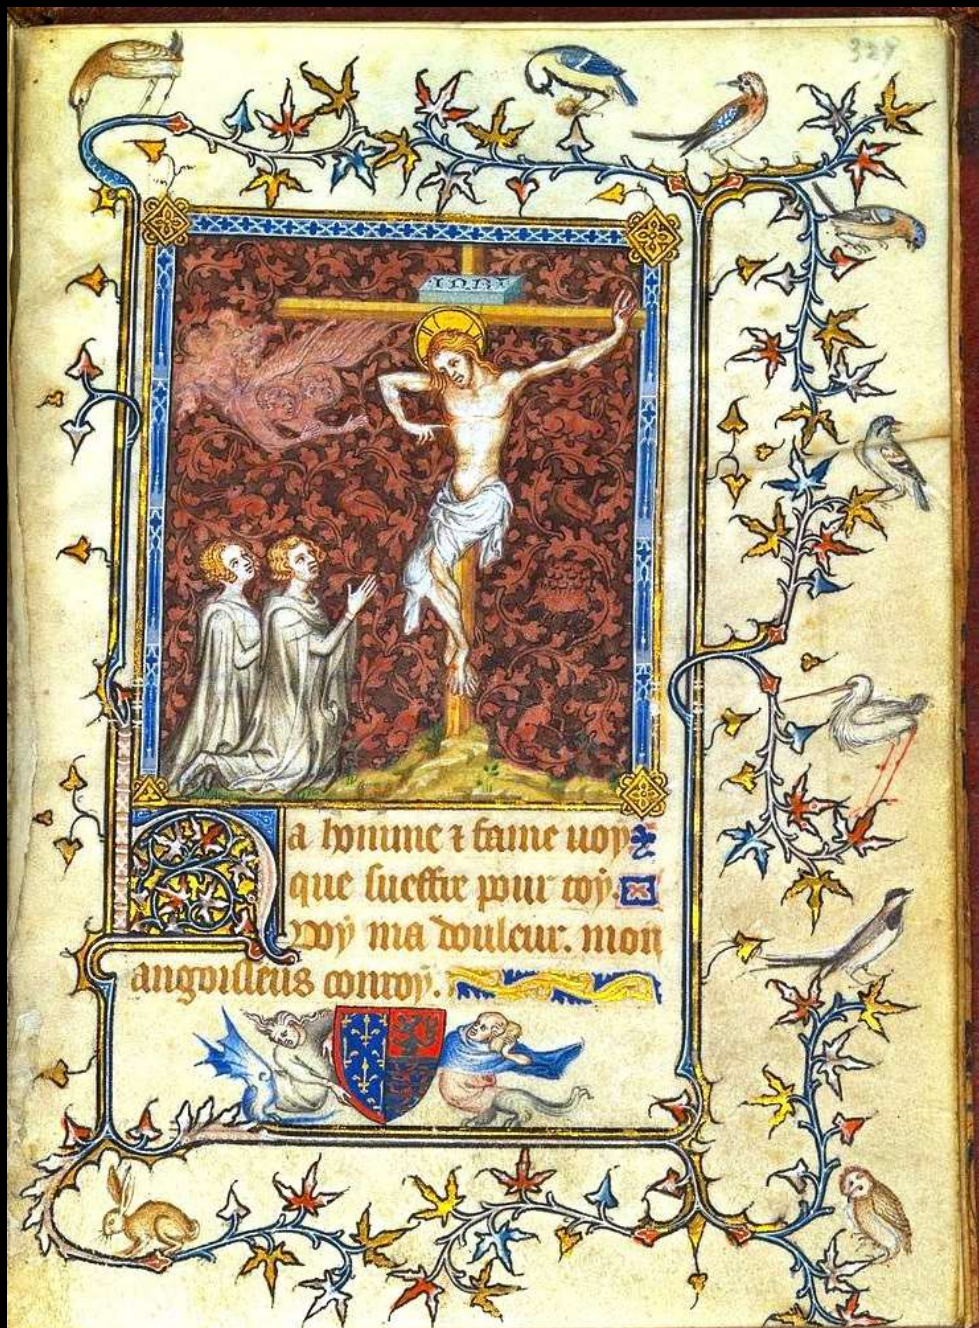 329
INRI
Ha homme ⁊ fame voy
que sueffre pour toy.
Voy ma douleur. mon
angoisseus conroy.